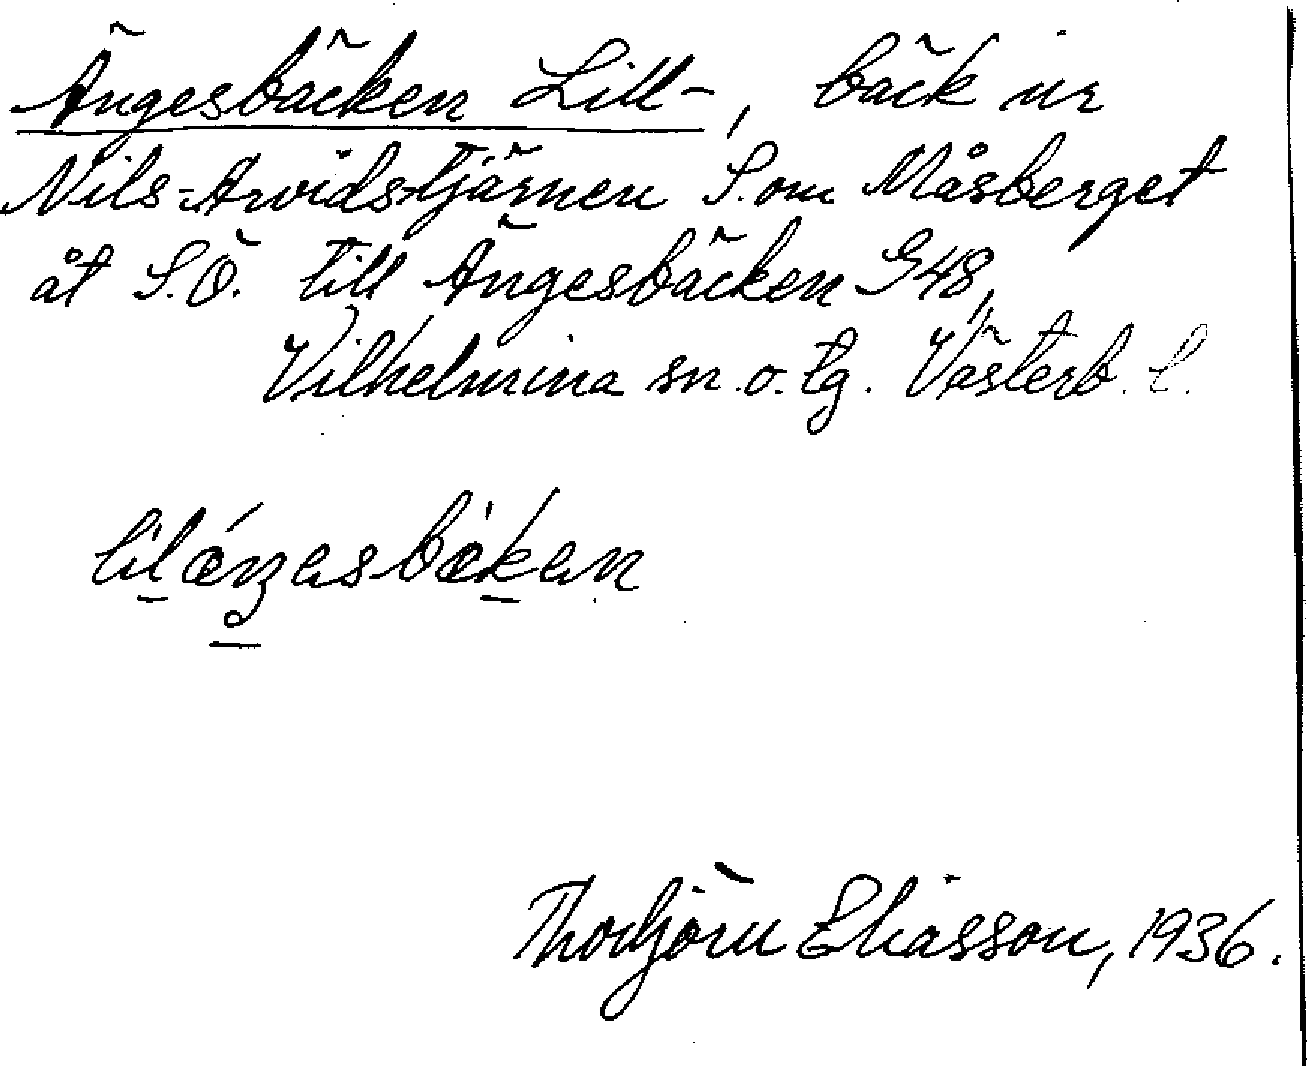 Ängesbäcken Lill-, bäck ur
Nils-Arvidstjärnen S. om Måsberget
åt S.Ö. till Ängesbäcken G48,
Vilhelmina sn. o. tg. Västerb. l.
Thorbjörn Eliasson, 1936.